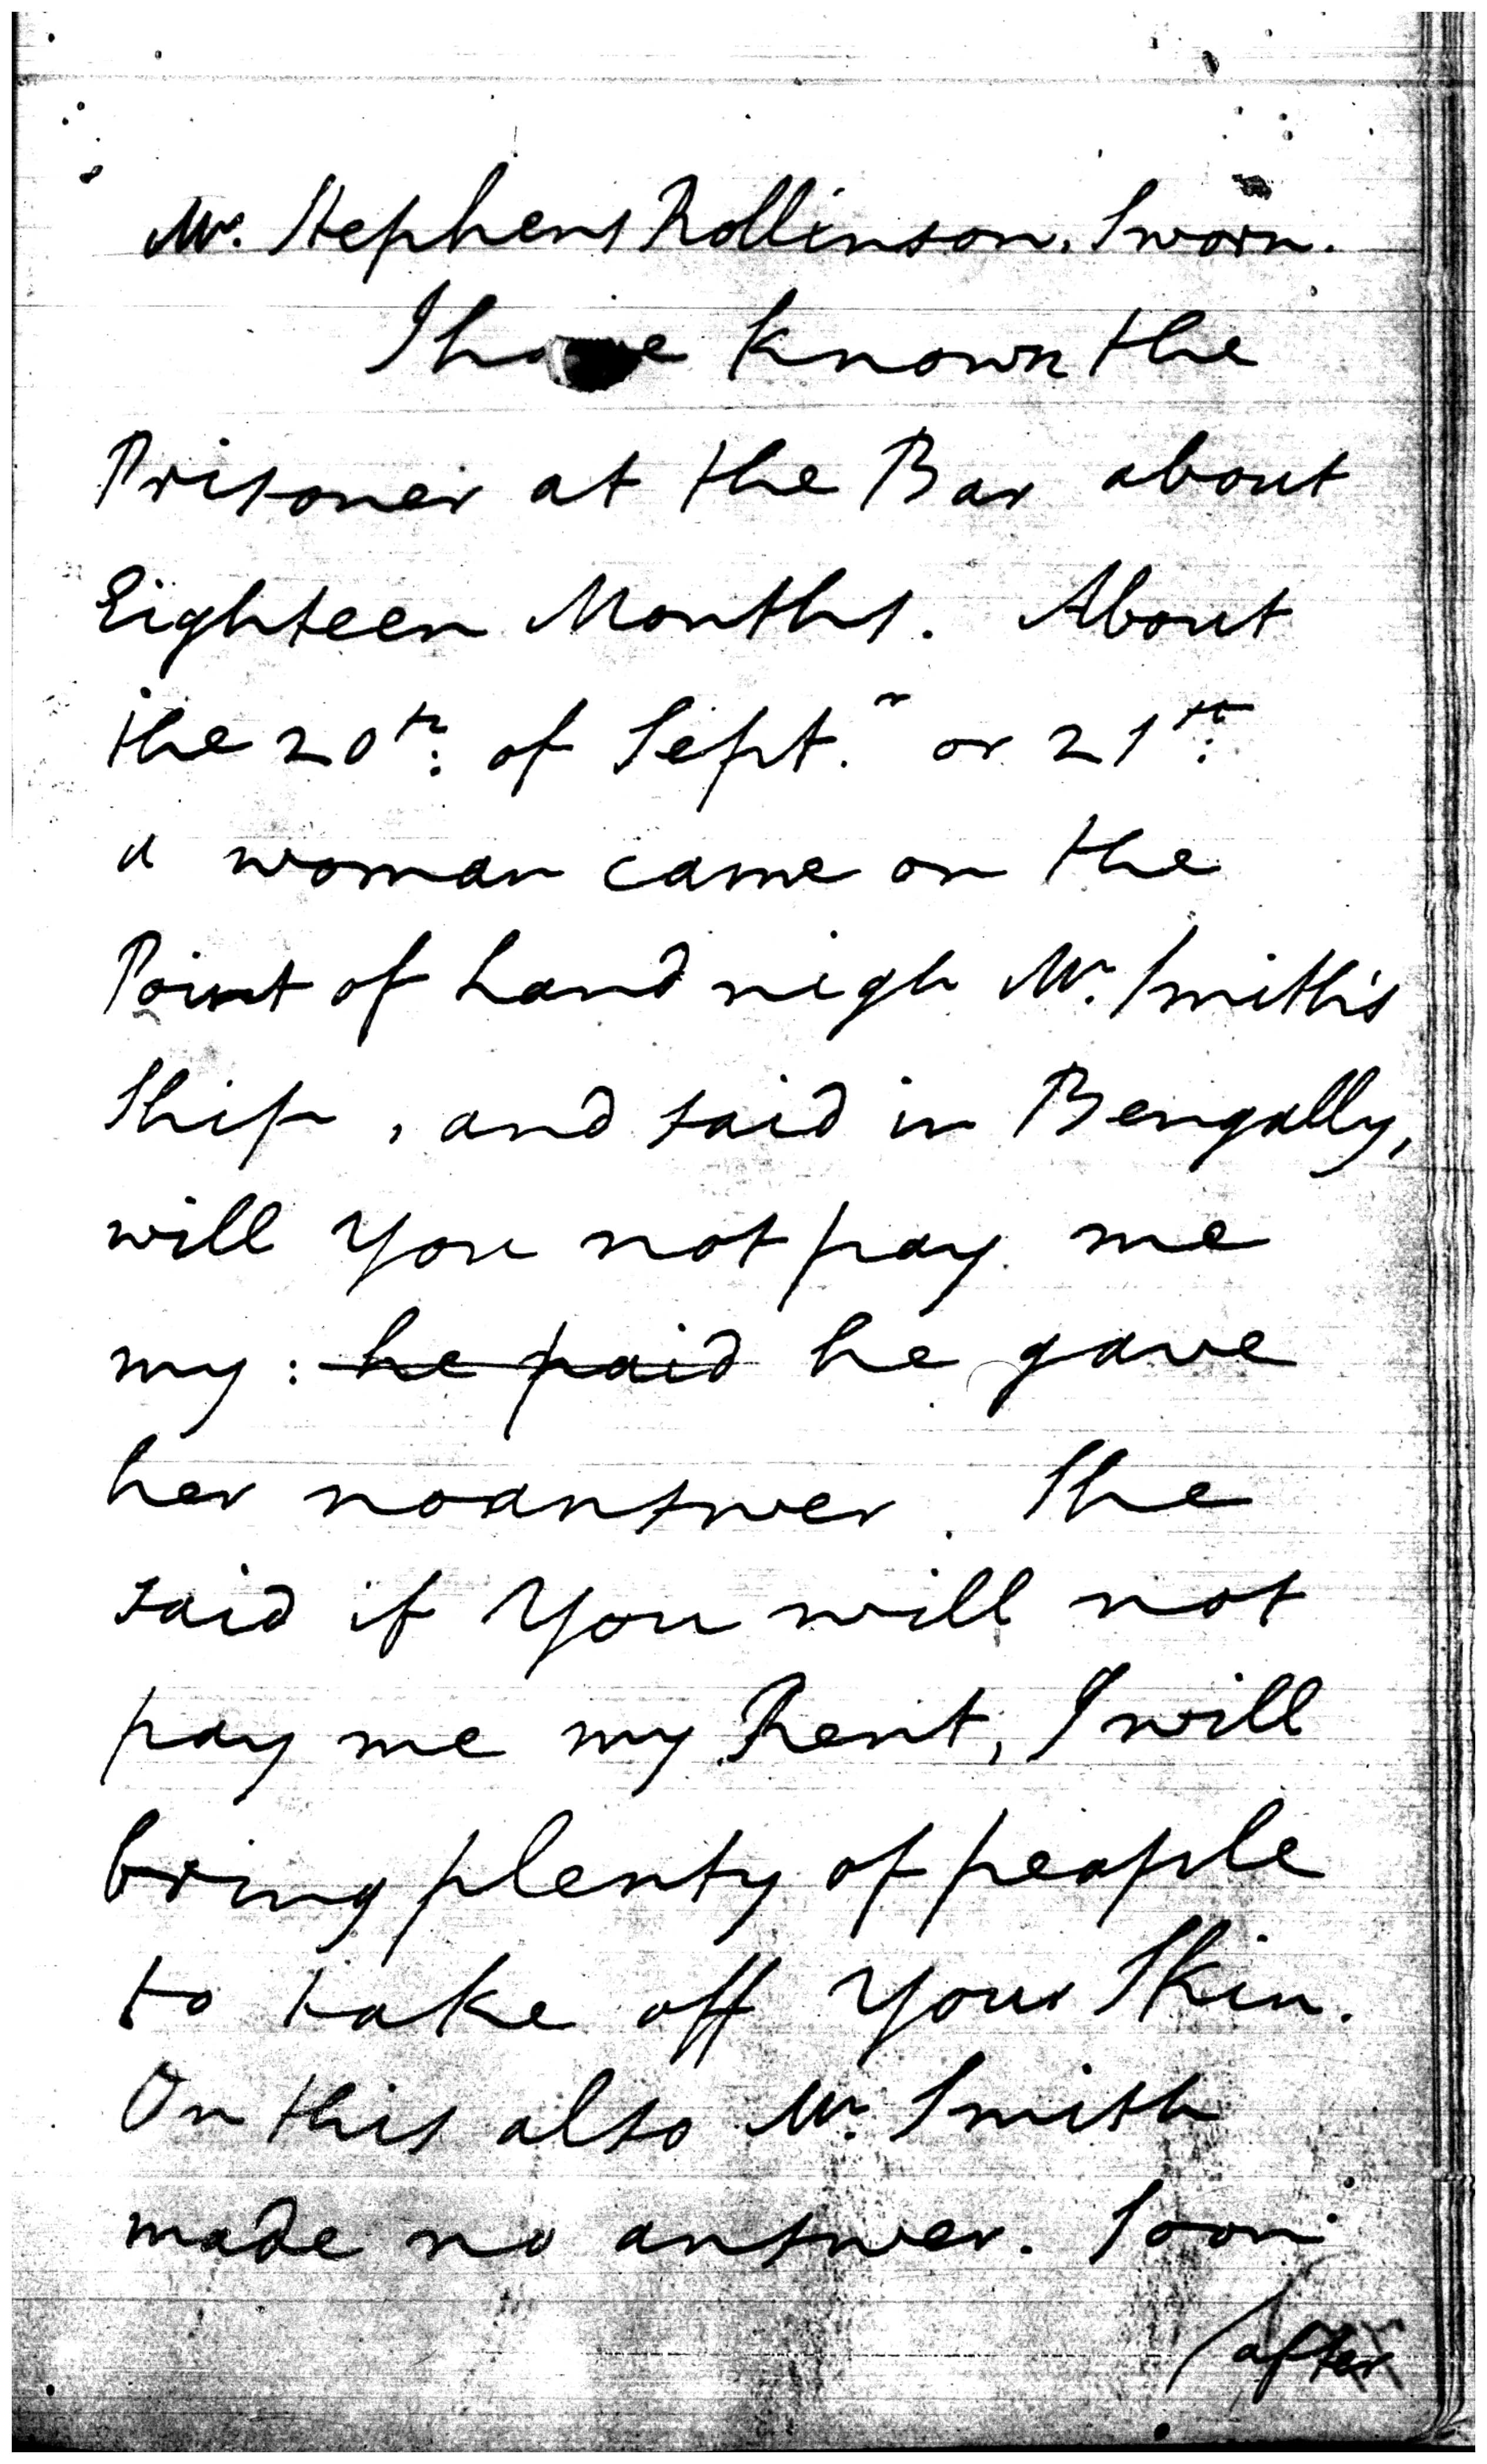 Mr. Stephens Rollinson, Sworn.
I have known the
Prisoner at the Bar about
Eighteen Months. About
the 20th: of Sept.r or 21th:
a woman came on the
Point of Land nigh Mr. Smith's
Ship, and said in Bengally,
will You not pay me
my: he paid he gave
her no answer. She
said if You will not
pay me my Rent, I will
bring plenty of people
to take off Your Skin.
On this also Mr. Smith
made no answer. Soon
/after